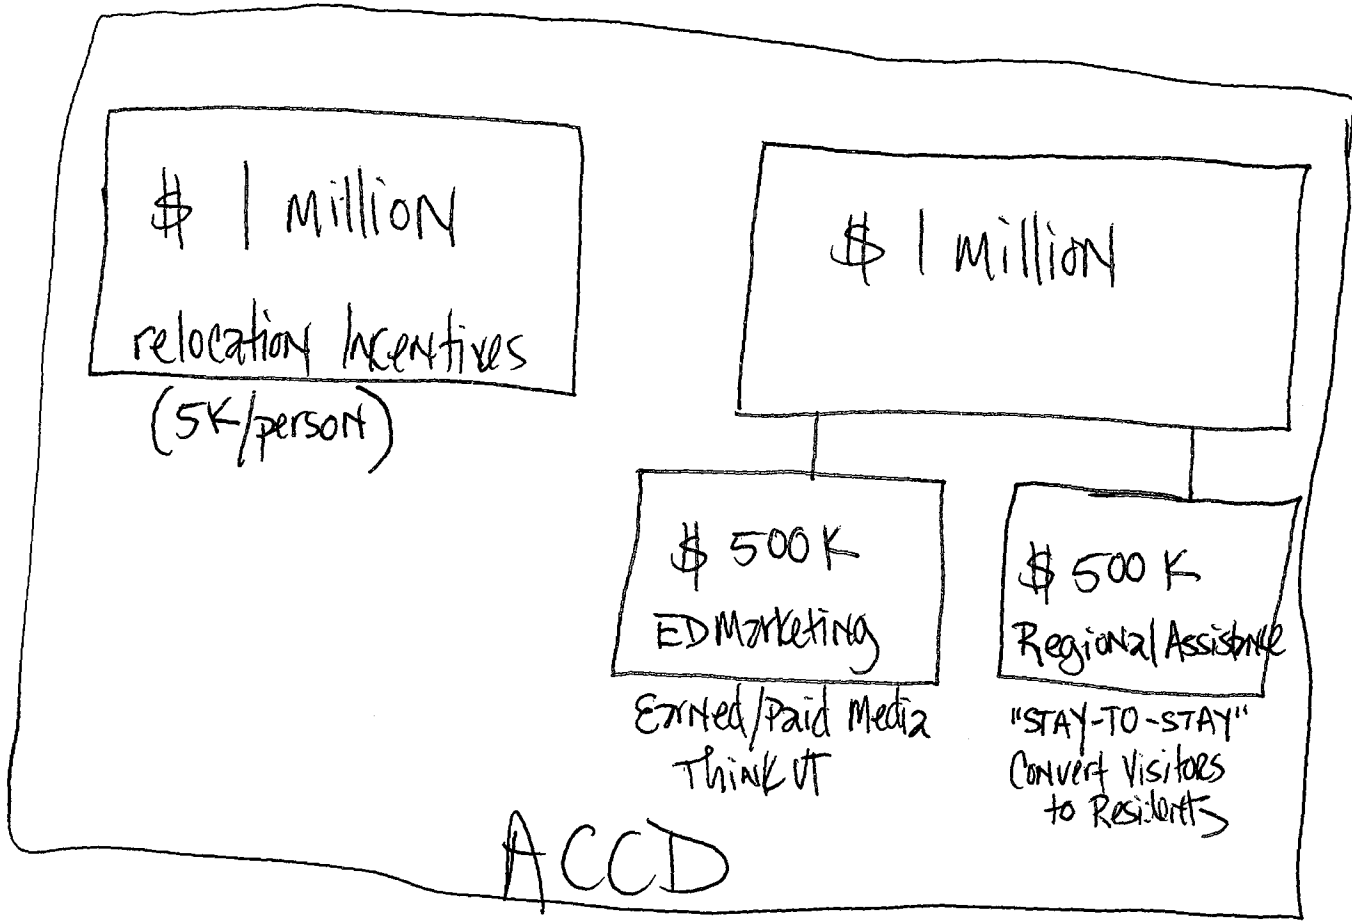 $ 1 Million
relocation Incentives
(5K/person)
$ 1 Million
$ 500K
ED Marketing
Earned/Paid Media
Think VT
$ 500K
Regional Assistance
"STAY-TO-STAY"
Convert Visitors
to Residents
ACCD